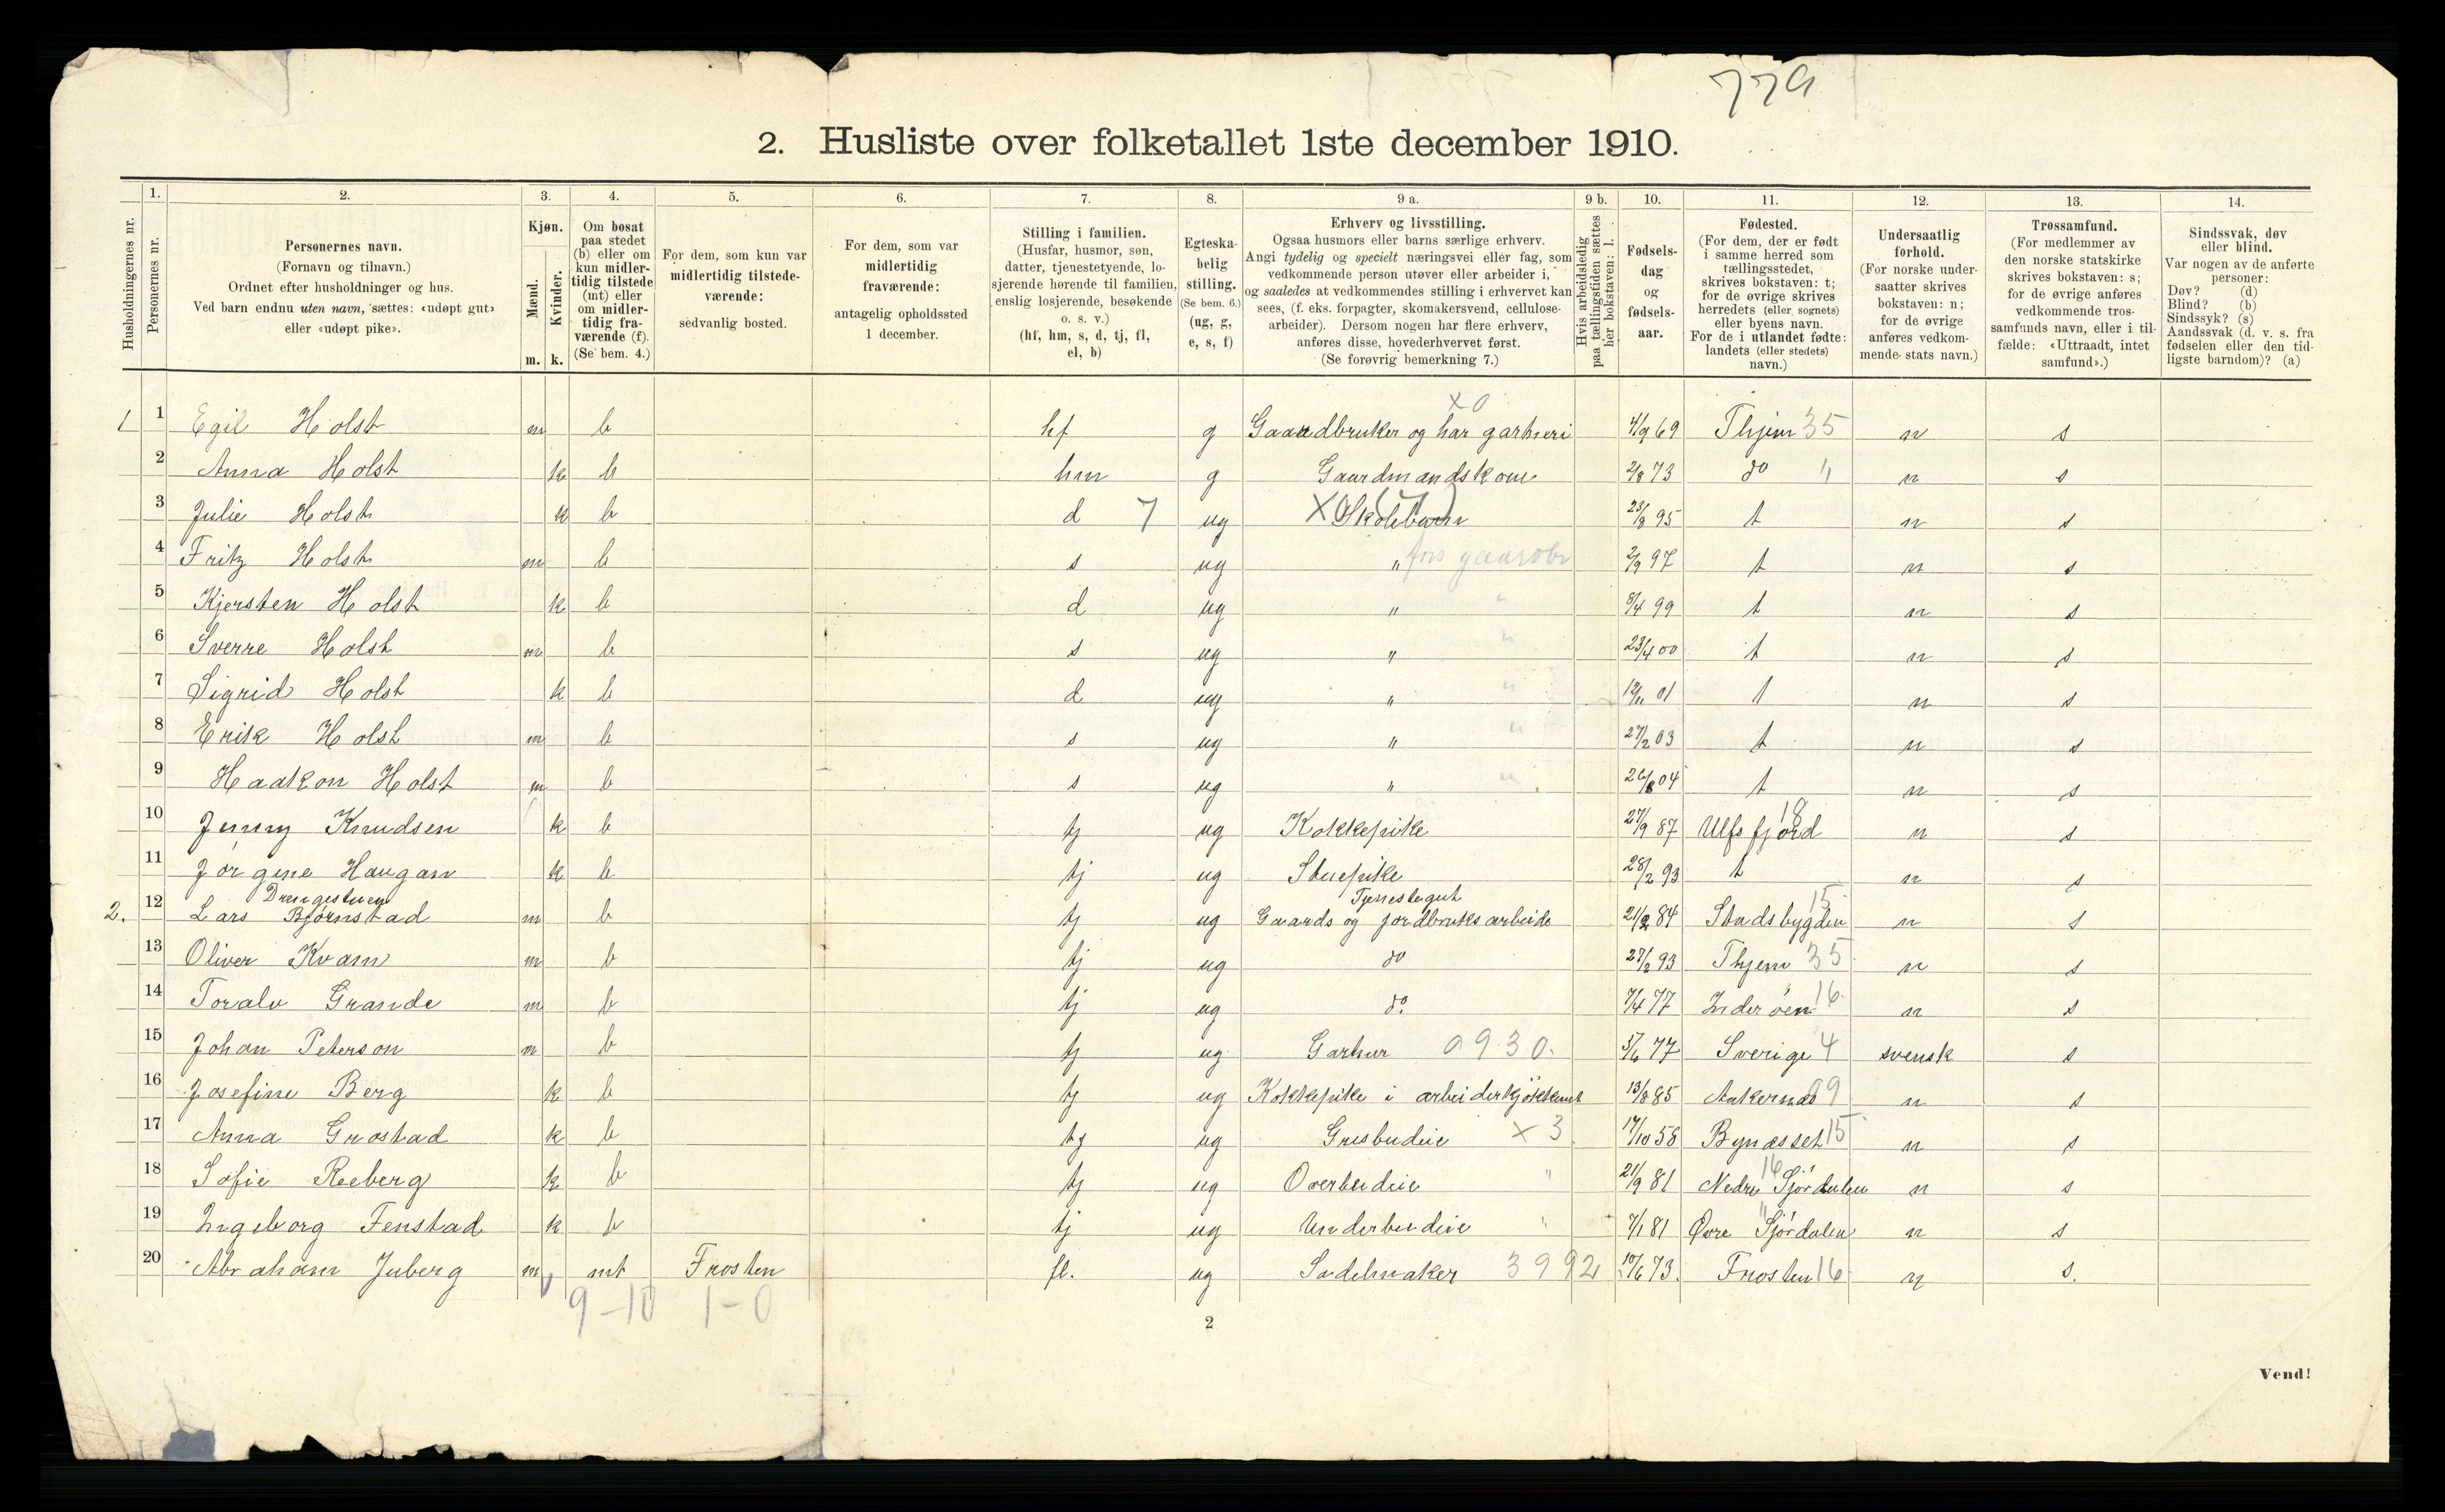 779
2. Husliste over folketallet 1ste december 1910.
Husholdningernes nr.
1.
Personernes nr.
2.
Personernes navn.
(Fornavn og tilnavn.)
Ordnet efter husholdninger og hus.
Ved barn endnu uten navn, sættes: «udøpt gut»
eller «udøpt pike».
3.
Kjøn.
Mænd.
Kvinder.
m. k.
4.
Om bosat
paa stedet
(b) eller om
kun midler-
tidig tilstede
(mt) eller
om midler-
tidig fra-
værende (f).
(Se bem. 4.)
5.
For dem, som kun var
midlertidig tilstede-
værende:
sedvanlig bosted.
6.
For dem, som var
midlertidig
fraværende:
antagelig opholdssted
1 december.
7.
Stilling i familien.
(Husfar, husmor, søn,
datter, tjenestetyende, lo-
sjerende hørende til familien,
enslig losjerende, besøkende
o. s. v.)
(hf, hm, s, d, tj, fl,
el, b)
8.
Egteska-
belig
stilling.
(Se bem. 6.)
(ug, g,
e, s, f)
9 a.
Erhverv og livsstilling.
Ogsaa husmors eller barns særlige erhverv.
Angi tydelig og specielt næringsvei eller fag, som
vedkommende person utøver eller arbeider i,
og saaledes at vedkommendes stilling i erhvervet kan
sees, (f. eks. forpagter, skomakersvend, cellulose-
arbeider). Dersom nogen har flere erhverv,
anføres disse, hovederhvervet først.
(Se forøvrig bemerkning 7.)
9 b.
Hvis arbeidsledig
paa tællingstiden sættes
her bokstaven: l.
10.
Fødsels-
dag
og
fødsels-
aar.
11.
Fødested.
(For dem, der er født
i samme herred som
tællingsstedet,
skrives bokstaven: t;
for de øvrige skrives
herredets (eller sognets)
eller byens navn.
For de i utlandet fødte:
landets (eller stedets)
navn.)
12.
Undersaatlig
forhold.
(For norske under-
saatter skrives
bokstaven: n;
for de øvrige
anføres vedkom-
mende stats navn.)
13.
Trossamfund.
(For medlemmer av
den norske statskirke
skrives bokstaven: s;
for de øvrige anføres
vedkommende tros-
samfunds navn, eller i til-
fælde: «Uttraadt, intet
samfund».)
14.
Sindssvak, døv
eller blind.
Var nogen av de anførte
personer:
Døv? (d)
Blind? (b)
Sindssyk? (s)
Aandssvak (d. v. s. fra
fødselen eller den tid-
ligste barndom)? (a)
X 0
1 1 Egil Holst m b hf g Gaardbruker og har gartneri 4/9 69 Thjem 35 n s
2 Anna Holst k b hm g Gaardmandskone 2/8 73 do " n s
3 Julie Holst k b d 7 ug X0 Skolebarn 23/8 95 t n s
4 Fritz Holst m b s ug " fors gaardbr 2/9 97 t n s
5 Kjersten Holst k b d ug " " 8/4 99 t n s
6 Sverre Holst m b s ug " " 23/4 00 t n s
7 Sigrid Holst k b d ug " " 12/11 01 t n s
8 Erik Holst m b s ug " " 27/2 03 t n s
9 Haakon Holst m b s ug " " 26/8 04 t n s
10 Jenny Knudsen k b tj ug Kokkepike 27/9 87 Ulfsfjord 18 n s
11 Jørgine Haugan k b tj ug Stuepike 28/2 93 t n s
Drengestuen Tjenestegut
2. 12 Lars Bjørnstad m b tj ug Gaards og jordbruksarbeide 21/2 84 Stadsbygden 15 n s
13 Oliver Kvam m b tj ug do 27/2 93 Thjem 35 n s
14 Toralv Grande m b tj ug do. 7/4 77 Inderøen 16 n s
15 Johan Peterson m b tj ug Gartner 0930. 3/6 77 Sverige 4 svensk s
16 Josefine Berg k b tj ug Kokkepike i arbeiderkjøkkenet 13/8 85 Ankernas 99 n s
17 Anna Grostad k b tj ug Grisbudeie X 3 17/10 58 Bynesset 15 n s
18 Sofie Reeberg k b tj ug Overbudeie " 21/9 81 Nedre Sjørdalen 16 n s
19 Ingeborg Fenstad k b tj ug Underbudeie " 7/1 81 Øvre Sjørdalen " n s
20 Abraham Juberg m mt Frosten fl. ug Sadelmaker 3992 10/6 73. Frosten 16 n s.
9-10 1-0
2
Vend!